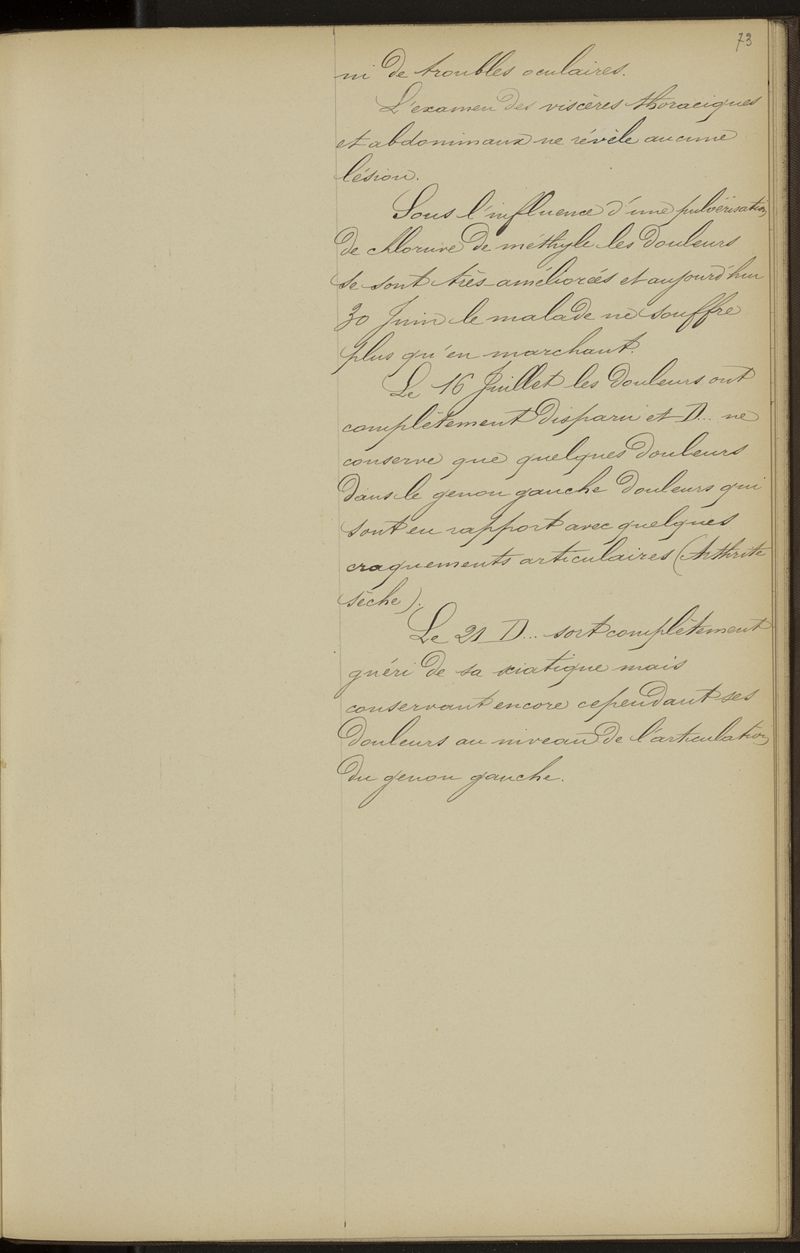 73
ni de troubles oculaires.
L'examen des viscères thoraciques
et abdominaux ne révèle aucune
lésion.
Sous l'influence d'une pulvérisation
de chlorure de méthyle les douleurs
se sont très améliorées et aujourd'hui
30 Juin le malade ne souffre
plus qu'en marchant.
Le 16 Juillet les douleurs ont
complètement disparu et D... ne
conserve que quelques douleurs
dans le genou gauche douleurs qui
sont en rapport avec quelques
craquements articulaires (Arthrite
sèche).
Le 21 D... sort complètement
guéri de sa sciatique mais
conservant encore cependant ses
douleurs au niveau de l'articulation
du genou gauche.